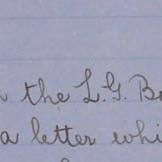 the L.G. B
a letter whi